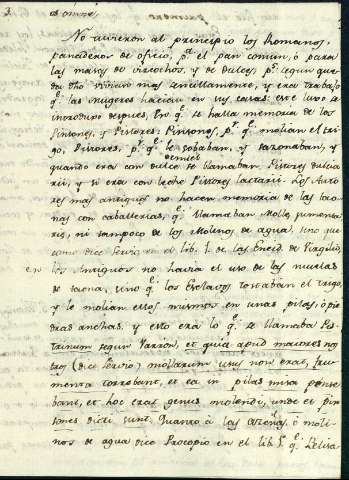 3.
No tuvieron al principio los Romanos,
panaderos de oficio, pa. el pan comun, ó para
las masas de vizcochos, y de dulces, pr. segun que
da dho vivieron mas sencillamente, y era trabajo
q. las mugeres hacian en sus casas: este luxo se
introduxo despues, En q. se halla memoria de los
Pinsones, y Pistores: Pinsones, p. q. molian el tri-
go, Pistores, p. q. le sobaban, y sazonaban, y
quando era con dulce se llamaban Pistores dulcia
rii, y si era con leche Pistores lactarii. Los Auto
res mas antiguos no hacen memoria de las tao-
nas con caballerias, q. llamaban Molas jumenta-
rias, ni tampoco de los Molinos de agua, sino que
como dice Servio en el lib. 1. de las Eneid. de Virgilio,
los Antiguos no havia el uso de las muelas
de taona, sino q. los Esclavos tostaban el trigo,
y le molian ellos mismos en unas pilas, ó pie
dras anchas, y esto era lo q. se llamaba Pis-
trinum segun Varrón, et quia apud maiores nos
tros (dice Servio) mollarum usus non erat, fru-
menta torrebant, et ea in pilas missa pinse
bant, et hoc erat genus molendi, unde et pin-
sones dicti sunt. Quanto á las ó moli
nos de agua dice Procopio en el lib. 1. q. Belisa